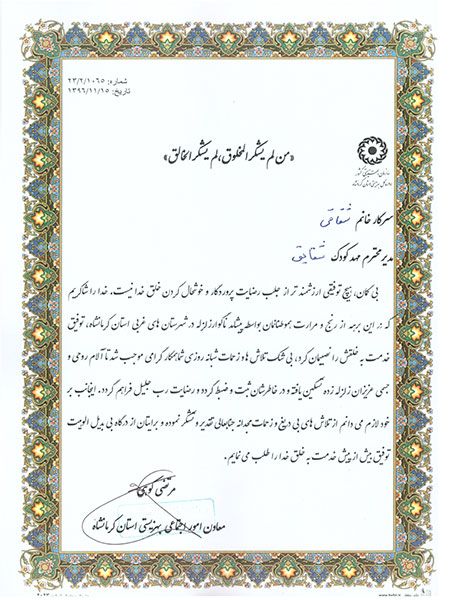 شماره: ۲۳/۲/۱۰۶۵
تاریخ: ۱۳۹۶/۱۱/۱۵
«من لم یشکر المخلوق، لم یشکر الخالق»
سازمان بهزیستی کشور
اداره کل بهزیستی استان کرمانشاه
سرکار خانم شقاقی
مدیر محترم مهد کودک شقایق
بی گمان، هیچ توفیقی ارزشمند تر از جلب رضایت پروردگار و خوشحال کردن خلق خدا نیست. خدا را شاکریم
که در این برهه از رنج و مرارت هموطنانمان بواسطه پیشامد ناگوار زلزله در شهرستان های غربی استان کرمانشاه، توفیق
خدمت به خلقش را نصیبمان کرد، بی شک تلاش ها و زحمات شبانه روزی شما همکار گرامی موجب شد تا آلام روحی و
جسمی عزیزان زلزله زده تسکین یافته و در خاطرشان ثبت و ضبط گردد و رضایت رب جلیل فراهم گردد. اینجانب بر
خود لازم می دانم از تلاش های بی دریغ و زحمات مجدانه جنابعالی تقدیر و تشکر نموده و برایتان از درگاه بی بدیل الوهیت
توفیق بیش از پیش خدمت به خلق خدا را طلب می نمایم.
مرتضی
معاون امور اجتماعی بهزیستی استان کرمانشاه